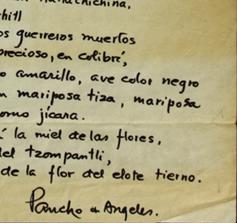 chitl
os guerreros muertos
precioso, en colibrí,
o amarillo, ave color negro
n mariposa tiza, mariposa
como jícara.
la miel de las flores,
del tzompantli,
de la flor del elote tierno.
Pancho Angeles.